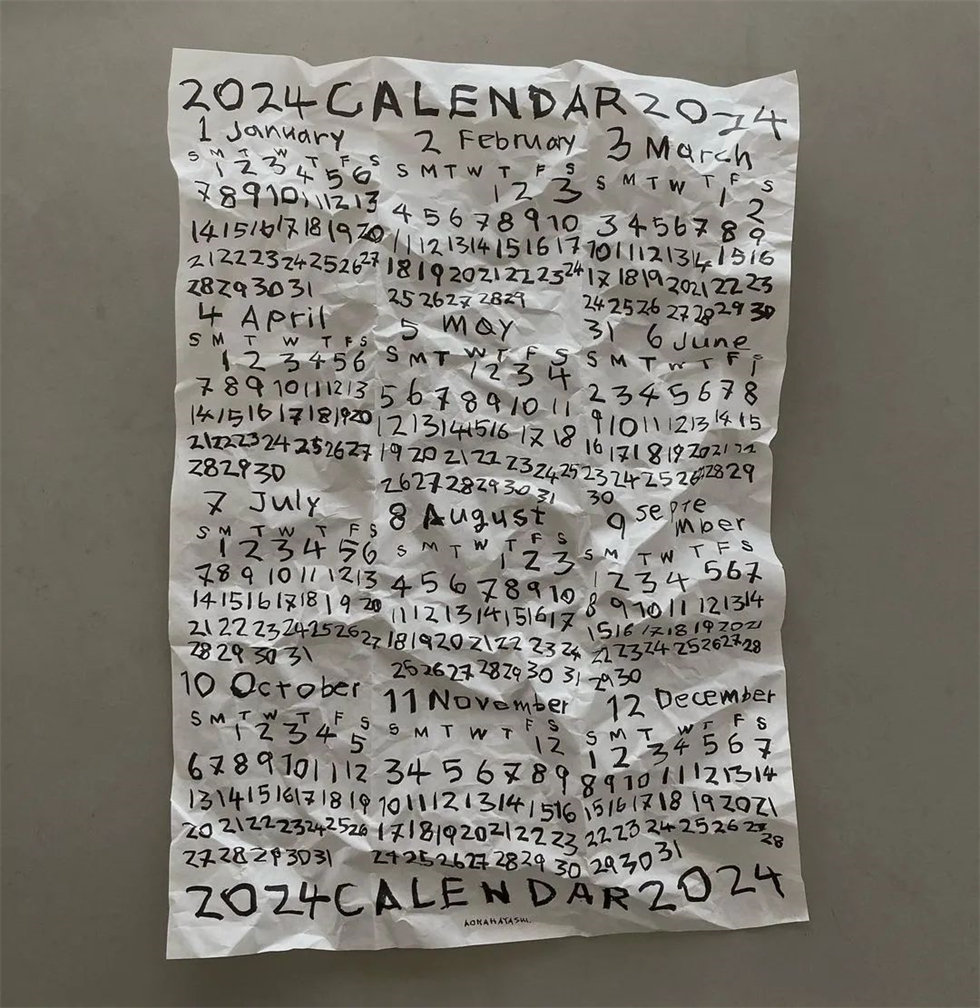 2024 CALENDAR 2024
1 January
S M T W T F S
1 2 3 4 5 6
7 8 9 10 11 12 13
14 15 16 17 18 19 20
21 22 23 24 25 26 27
28 29 30 31
2 February
S M T W T F S
1 2 3
4 5 6 7 8 9 10
11 12 13 14 15 16 17
18 19 20 21 22 23 24
25 26 27 28 29
3 March
S M T W T F S
1 2
3 4 5 6 7 8 9
10 11 12 13 14 15 16
17 18 19 20 21 22 23
24 25 26 27 28 29 30
31
4 April
S M T W T F S
1 2 3 4 5 6
7 8 9 10 11 12 13
14 15 16 17 18 19 20
21 22 23 24 25 26 27
28 29 30
5 May
S M T W T F S
1 2 3 4
5 6 7 8 9 10 11
12 13 14 15 16 17 18
19 20 21 22 23 24 25
26 27 28 29 30 31
6 June
S M T W T F
1
2 3 4 5 6 7 8
9 10 11 12 13 14 15
16 17 18 19 20 21 22
23 24 25 26 27 28 29
30
7 July
S M T W T F S
1 2 3 4 5 6
7 8 9 10 11 12 13
14 15 16 17 18 19 20
21 22 23 24 25 26 27
28 29 30 31
8 August
S M T W T F S
1 2 3
4 5 6 7 8 9 10
11 12 13 14 15 16 17
18 19 20 21 22 23 24
25 26 27 28 29 30 31
9 septe
mber
S M T W T F S
1 2 3 4 5 6 7
8 9 10 11 12 13 14
15 16 17 18 19 20 21
22 23 24 25 26 27 28
29 30
10 October
S M T W T F S
1 2 3 4 5
6 7 8 9 10 11 12
13 14 15 16 17 18 19
20 21 22 23 24 25 26
27 28 29 30 31
11 November
S M T W T F S
1 2
3 4 5 6 7 8 9
10 11 12 13 14 15 16
17 18 19 20 21 22 23
24 25 26 27 28 29 30
12 December
S M T W T F S
1 2 3 4 5 6 7
8 9 10 11 12 13 14
15 16 17 18 19 20 21
22 23 24 25 26 27 28
29 30 31
2024 CALENDAR 2024